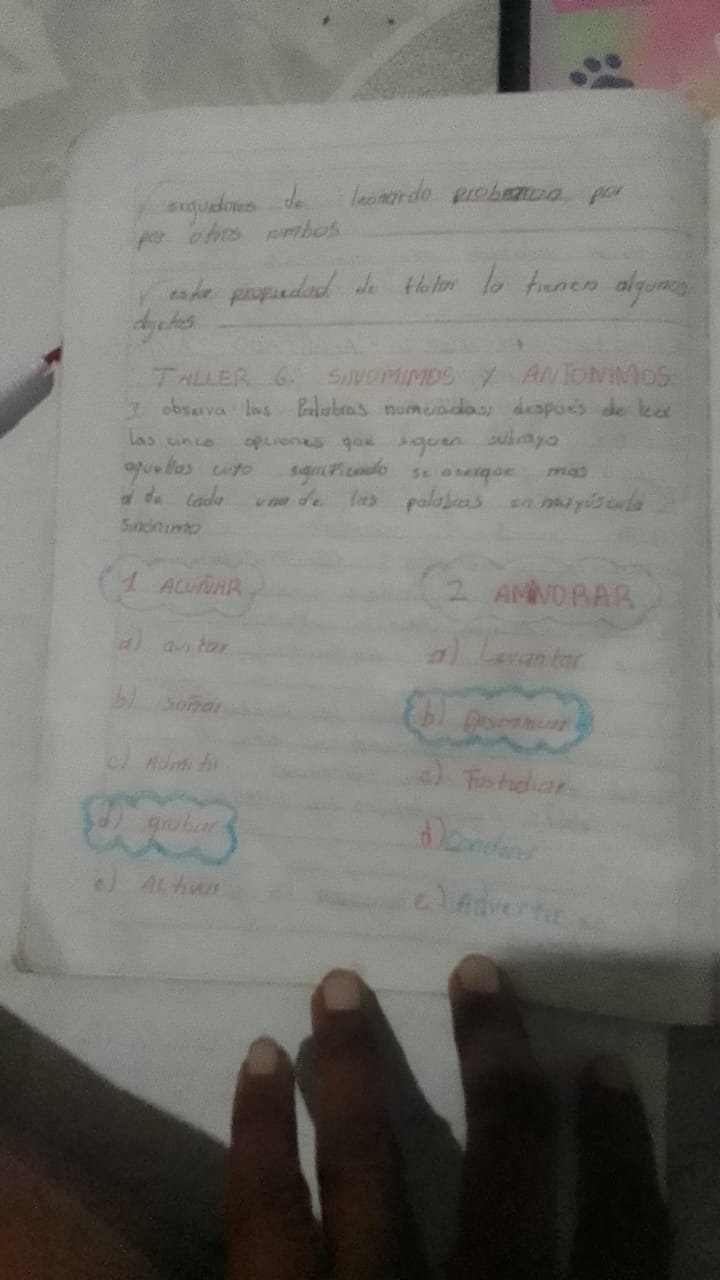 seguidores de leonardo por
por otros rumbos
esta propiedad de flotar la tienen algunos
objetos
TALLER 6. SINOMIMOS Y ANTONIMOS
observa las Palabras numeradas, despues de leer
las cinco opciones que siguen subraya
aquellas cuyo significado se acerque mas
a de cada una de las palabras en mayúscula
sinónimo
1 ACUÑAR
2 AMINORAR
a) Levantar
b) soñar
c) Admitir
b) Disminuir
c) Fastidiar
d) grabar
d)
e)
e) Advertir